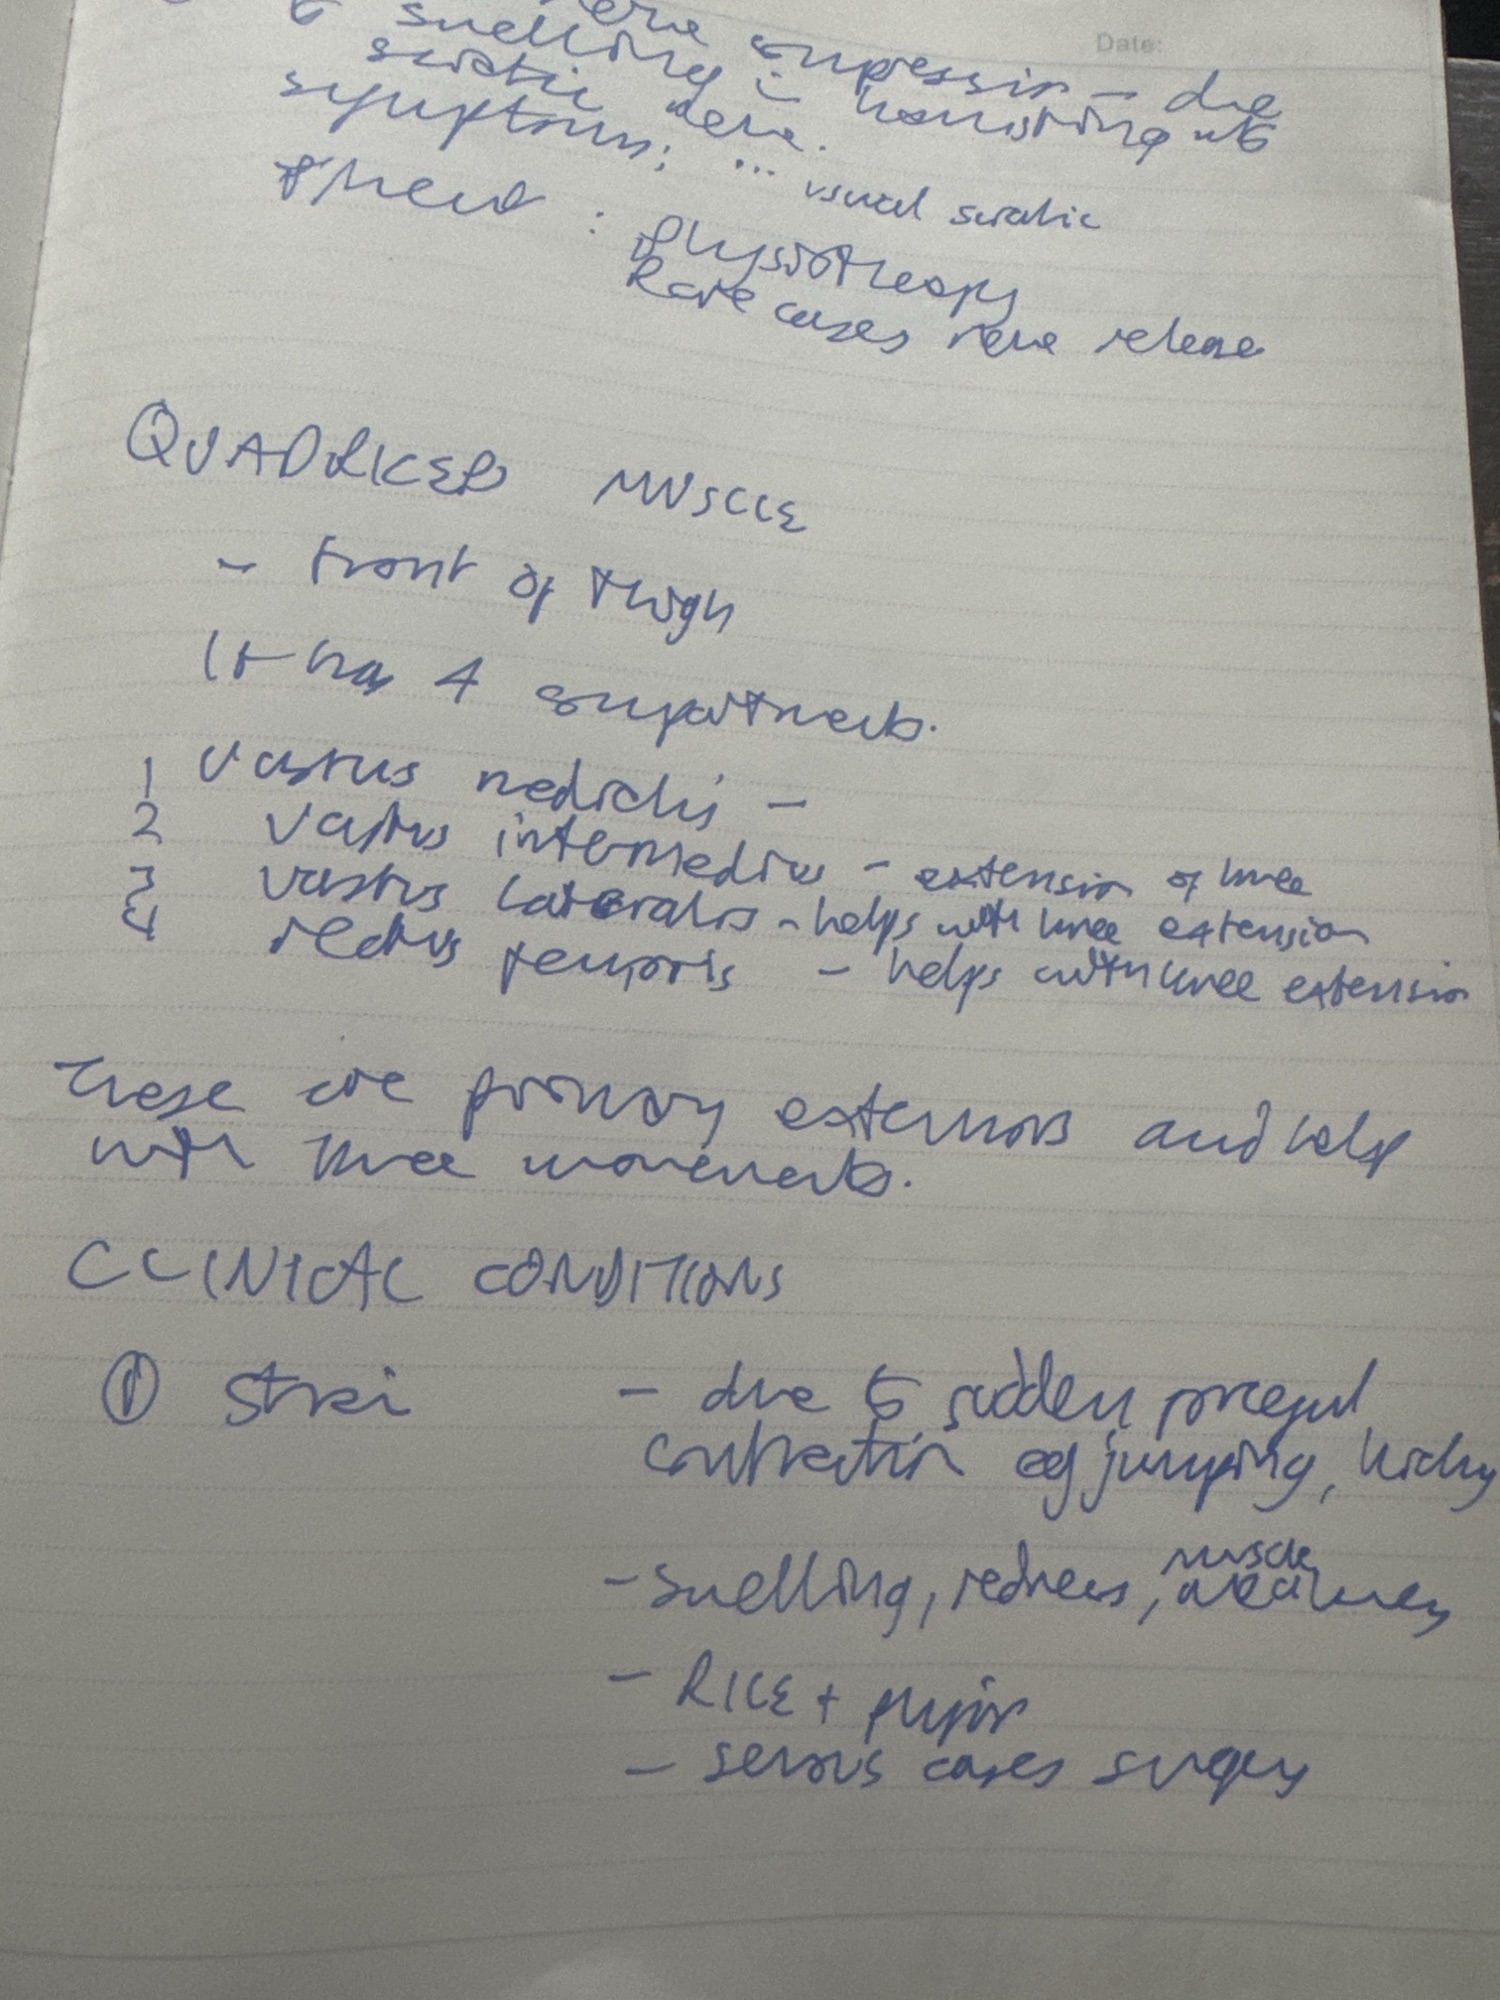 Date:
nerve compression - due
to swelling in hamstring onto
sciatic nerve.
symptoms: ... usual sciatic
treat : physiotherapy
Rare cases nerve release
QUADRICEP MUSCLE
- Front of thigh
It has 4 compartments.
1 vastus medialis -
2 vastus intermedius - extension of knee
3 vastus lateralis - helps with knee extension
4 rectus femoris - helps with knee extension
These are primary extensors and help
with knee movements.
CLINICAL CONDITIONS
① Strai - due to sudden forceful
contraction eg jumping, kicking
- swelling, redness, muscle weakness
- RICE + physio
- serious cases surgery